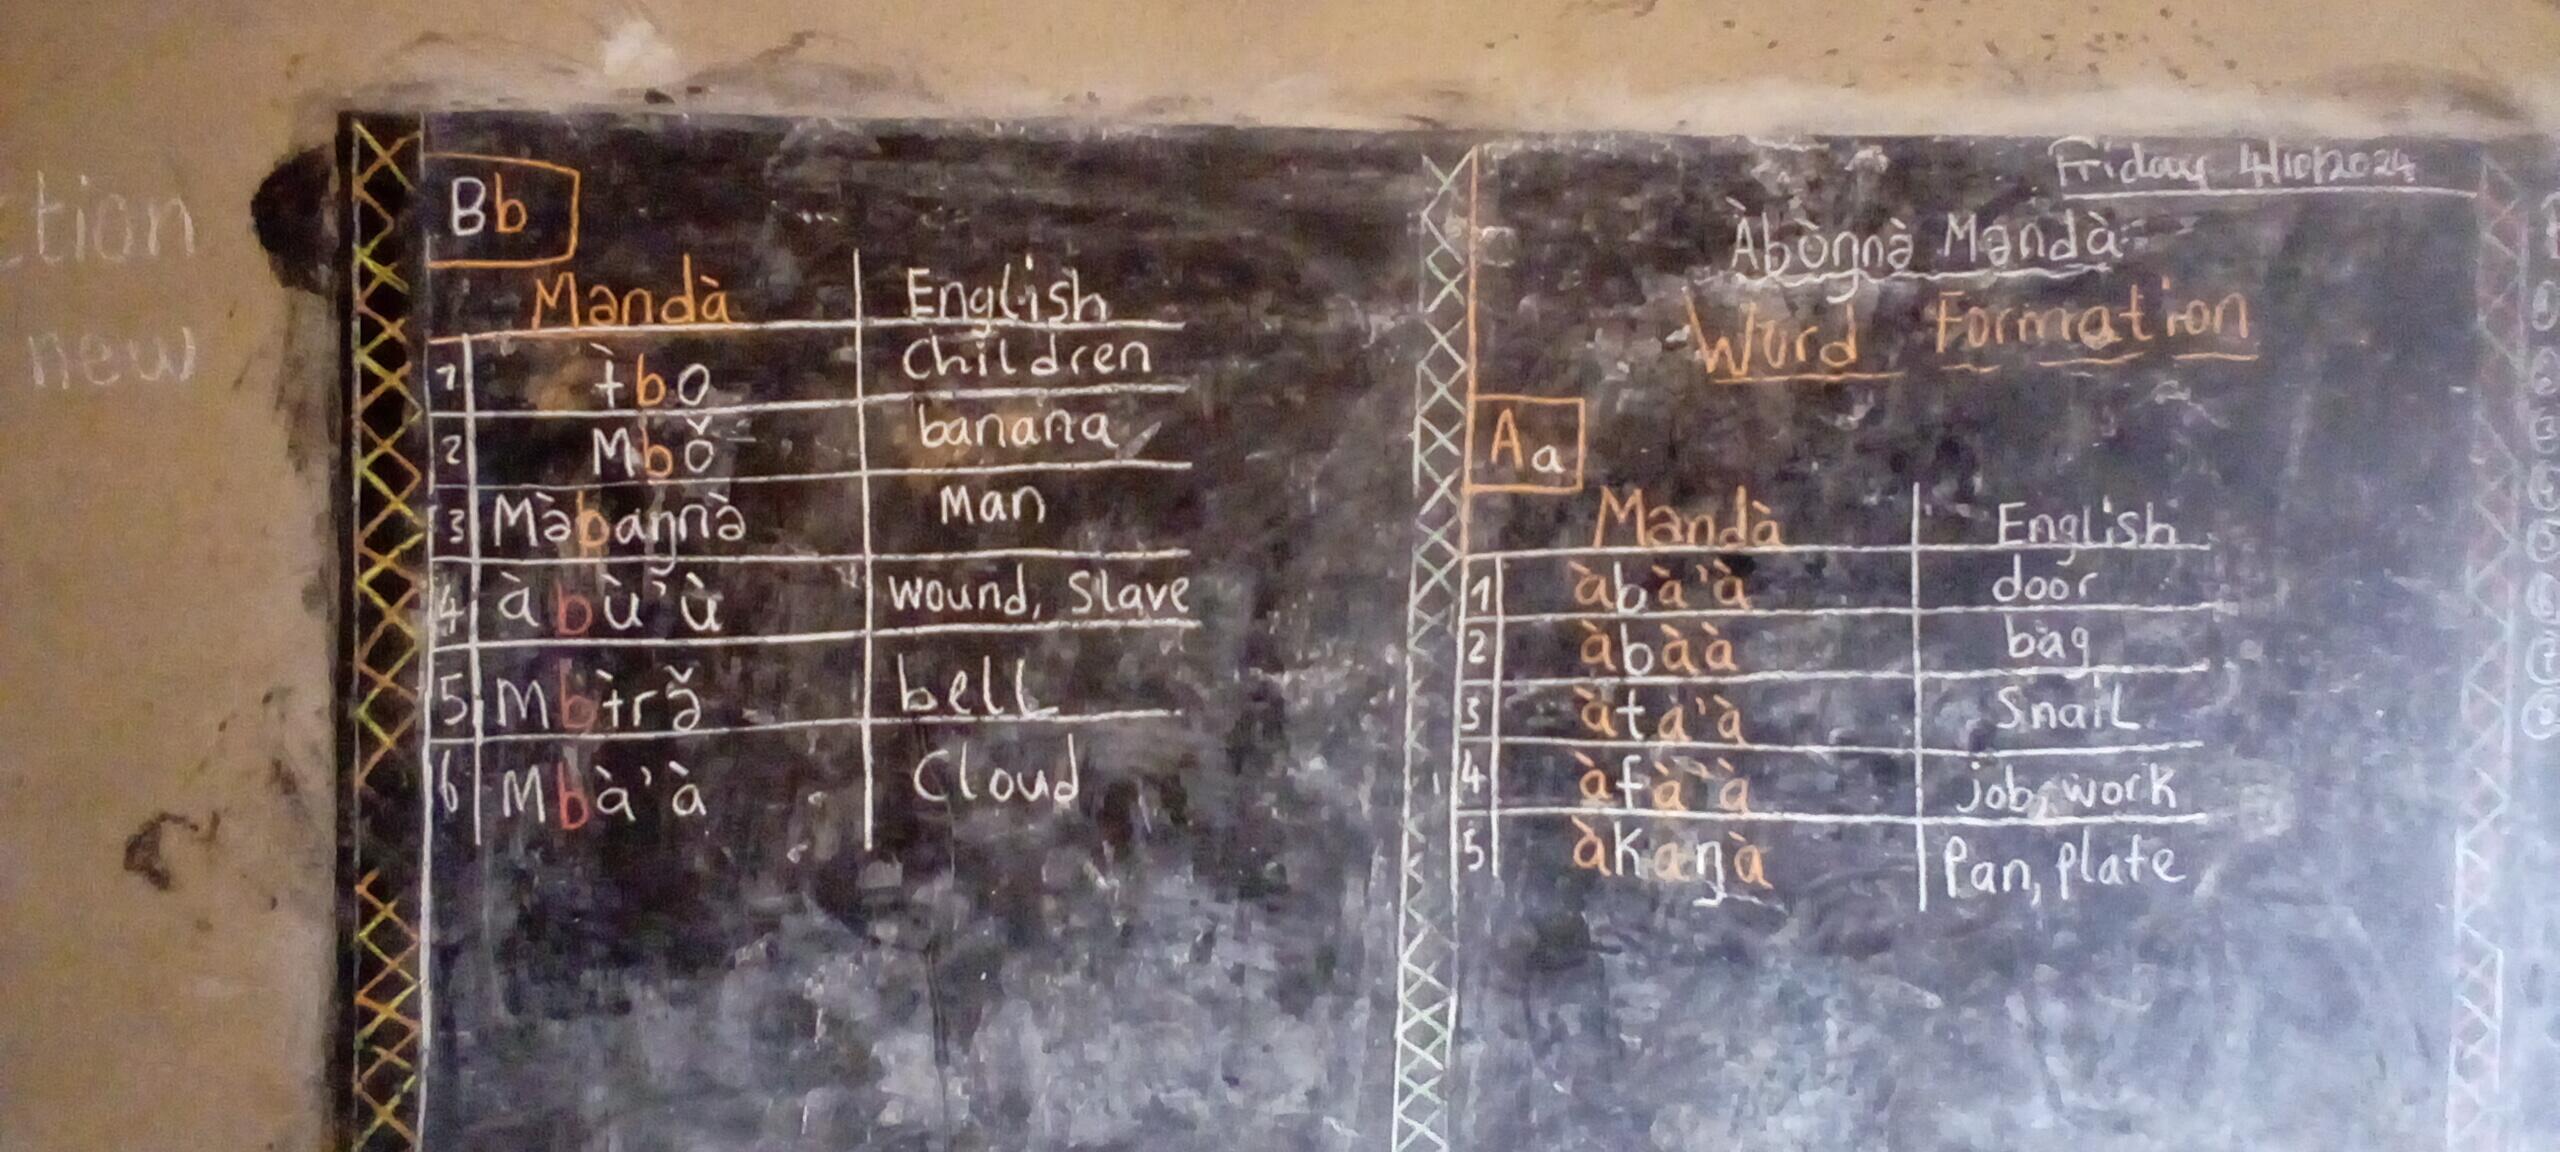 tion
new
Bb
Mandà English
1 ɨ̀bo Children
2 Mbǒ banana
3 Mə̀baŋnə̀ Man
4 àbù'ù wound, Slave
5 Mbɨ̀rə̌ bell
6 Mbà'à Cloud
Friday 4/10/2024
Àbòŋnə̀ Məndà
Word Formation
Aa
Məndà English
1 àbà'à door
2 àbàà bag
3 àtà'à Snail
4 àfà'à job, work
5 àkaŋà Pan, plate